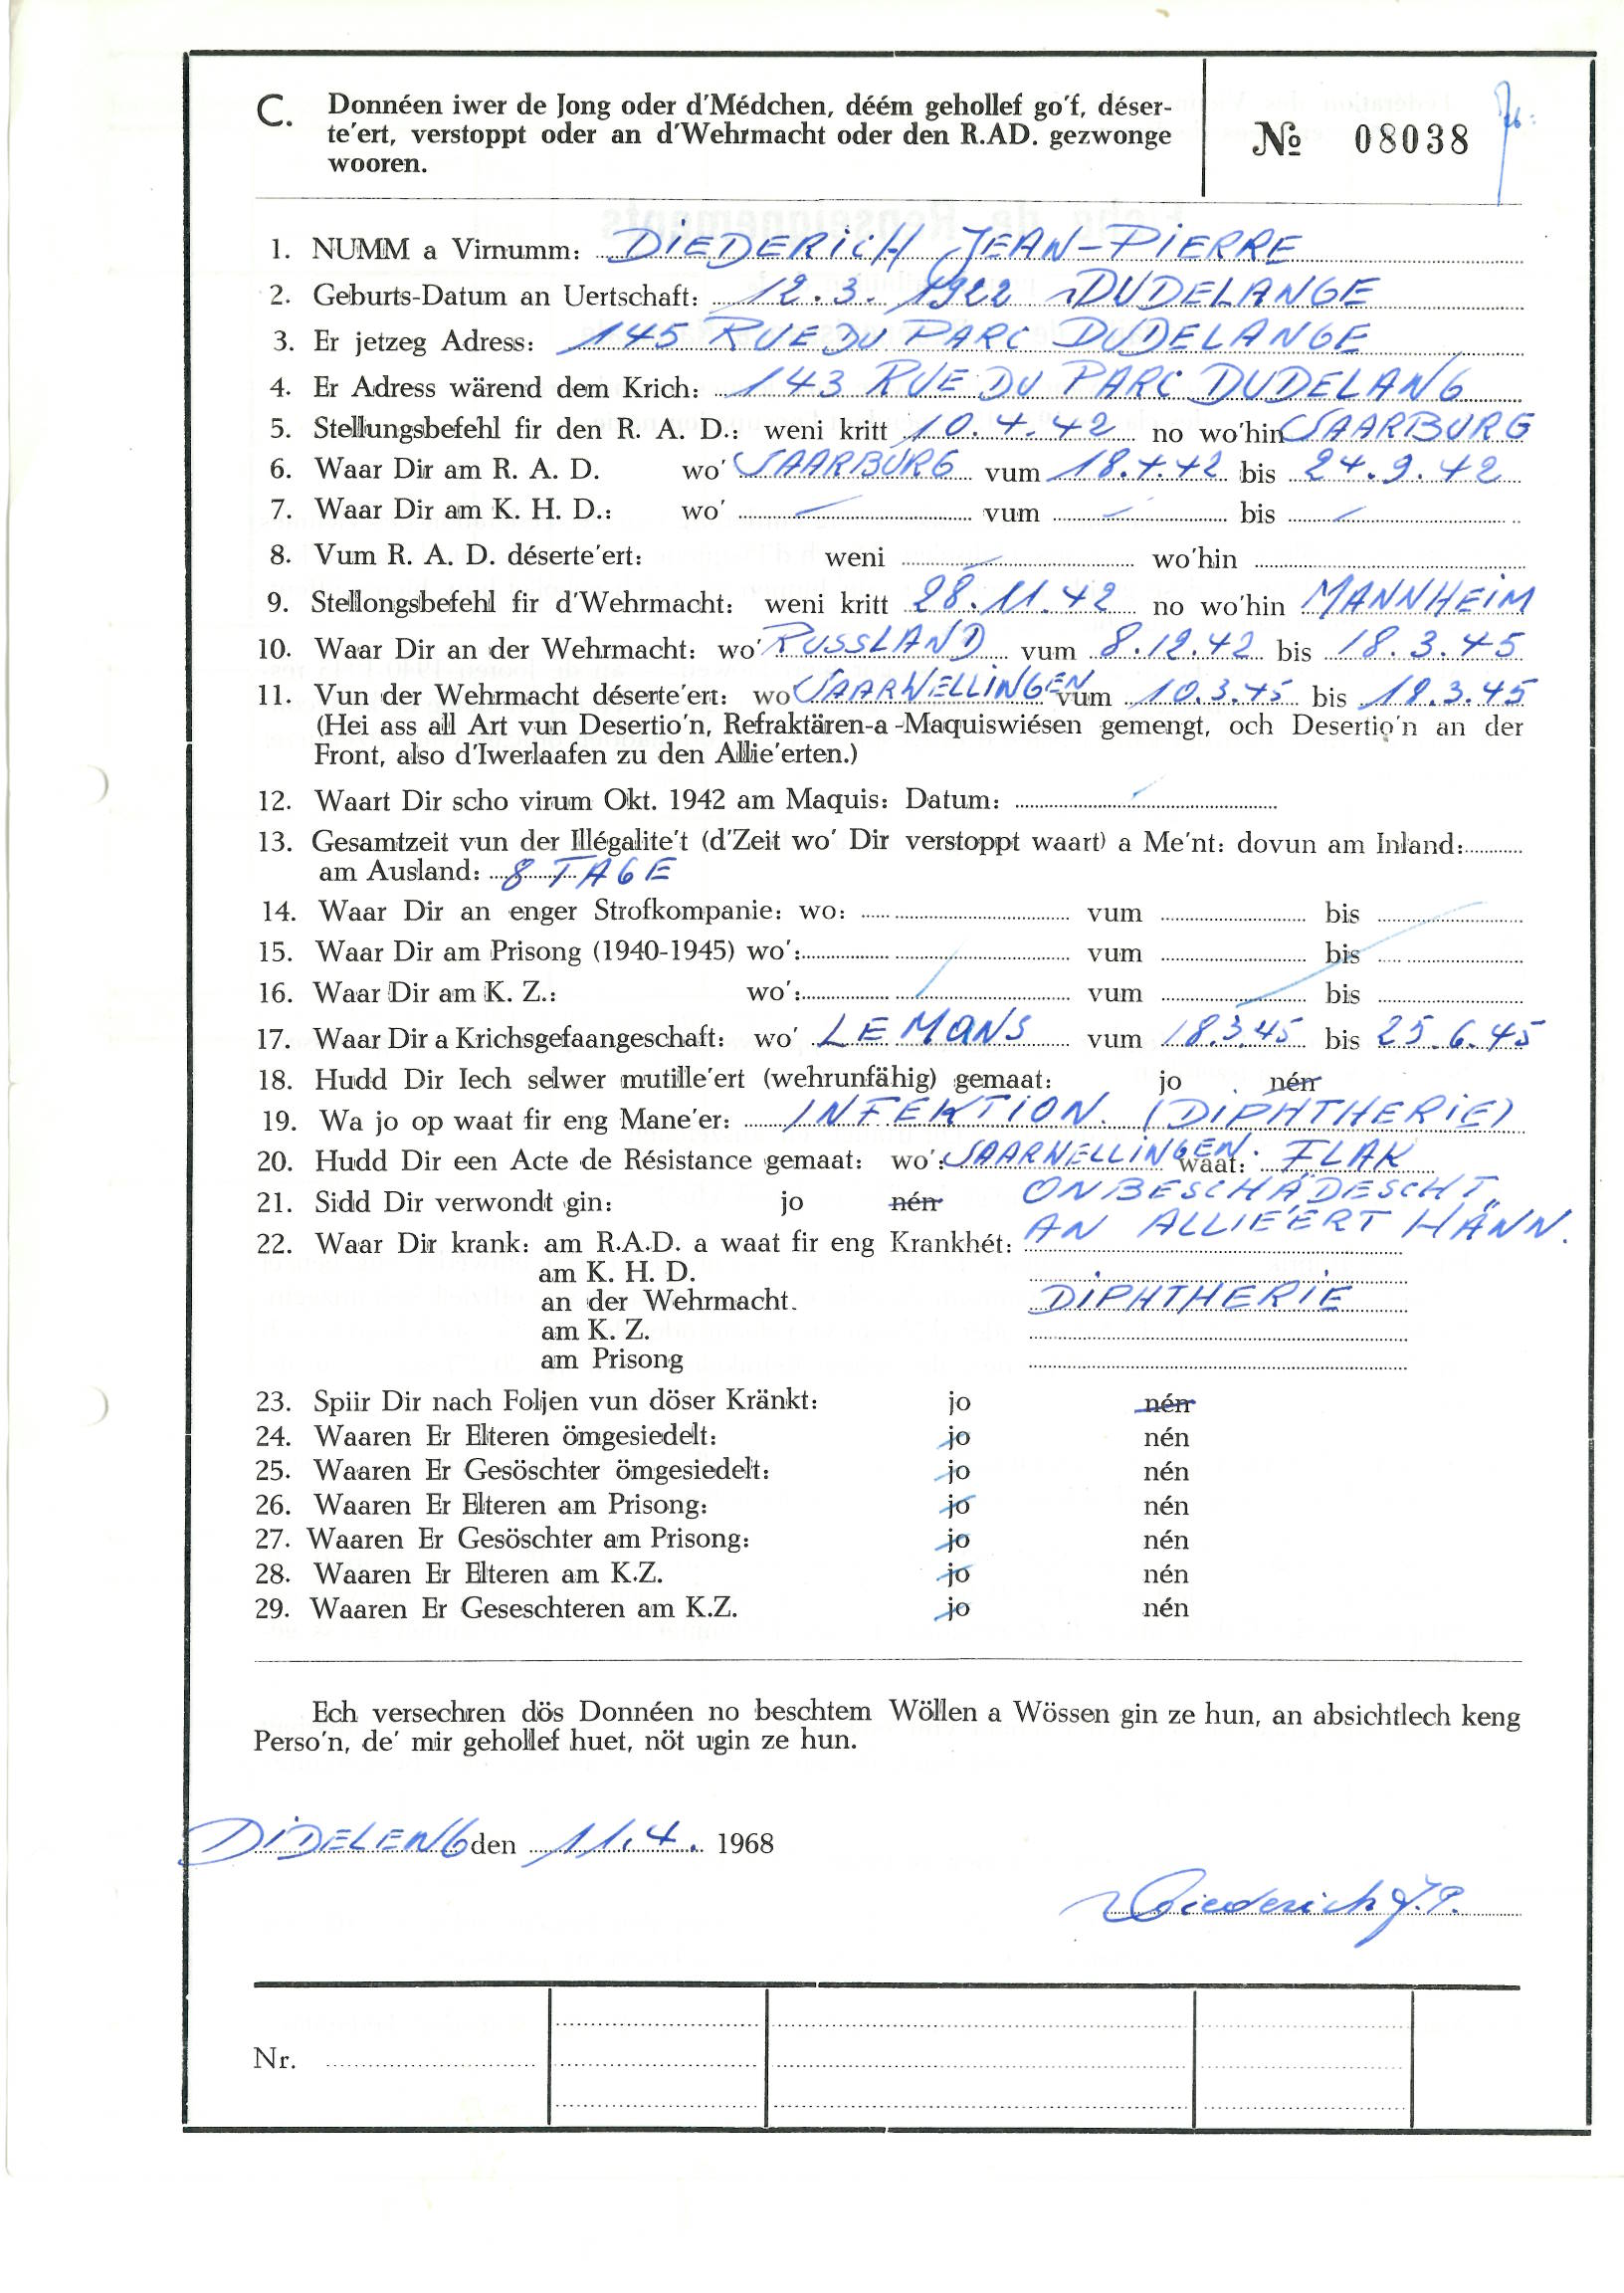 C. Donnéen iwer de Jong oder d'Médchen, déém gehollef go'f, déser-
te'ert, verstoppt oder an d'Wehrmacht oder den R.AD. gezwonge
wooren.
№ 08038
1. NUMM a Virnumm: DIEDERICH JEAN-PIERRE
2. Geburts-Datum an Uertschaft: 12.3.1922 DUDELANGE
3. Er jetzeg Adress: 145 RUE DU PARC DUDELANGE
4. Er Adress wärend dem Krich: 143 RUE DU PARC DUDELANG
5. Stellungsbefehl fir den R. A. D.: weni kritt 10.4.42 no wo'hin SAARBURG
6. Waar Dir am R. A. D. wo' SAARBURG vum 18.4.42 bis 24.9.42
7. Waar Dir am K. H. D.: wo' — vum — bis —
8. Vum R. A. D. déserte'ert: weni — wo'hin
9. Stellongsbefehl fir d'Wehrmacht: weni kritt 28.11.42 no wo'hin MANNHEIM
10. Waar Dir an der Wehrmacht: wo' RUSSLAND vum 8.12.42 bis 18.3.45
11. Vun der Wehrmacht déserte'ert: wo SAARWELLINGEN vum 10.3.45 bis 18.3.45
(Hei ass all Art vun Desertio'n, Refraktären-a-Maquiswiésen gemengt, och Desertio'n an der
Front, also d'Iwerlaafen zu den Allie'erten.)
12. Waart Dir scho virum Okt. 1942 am Maquis: Datum:
13. Gesamtzeit vun der Illégalite't (d'Zeit wo' Dir verstoppt waart) a Me'nt: dovun am Inland:
am Ausland: 8 TAGE
14. Waar Dir an enger Strofkompanie: wo: vum bis
15. Waar Dir am Prisong (1940-1945) wo': vum bis
16. Waar Dir am K. Z.: wo': vum bis
17. Waar Dir a Krichsgefaangeschaft: wo' LE MANS vum 18.3.45 bis 25.6.45
18. Hudd Dir Iech selwer mutille'ert (wehrunfähig) gemaat: jo nén
19. Wa jo op waat fir eng Mane'er: INFEKTION. (DIPHTHERIE)
20. Hudd Dir een Acte de Résistance gemaat: wo': SAARWELLINGEN. waat: FLAK
ONBESCHÄDESCHT
21. Sidd Dir verwondt gin: jo nén
AN ALLIE'ERT HÄNN.
22. Waar Dir krank: am R.A.D. a waat fir eng Krankhét:
am K. H. D.
an der Wehrmacht. DIPHTHERIE
am K. Z.
am Prisong
23. Spiir Dir nach Foljen vun döser Kränkt: jo nén
24. Waaren Er Elteren ömgesiedelt: jo nén
25. Waaren Er Gesöschter ömgesiedelt: jo nén
26. Waaren Er Elteren am Prisong: jo nén
27. Waaren Er Gesöschter am Prisong: jo nén
28. Waaren Er Elteren am K.Z. jo nén
29. Waaren Er Geseschteren am K.Z. jo nén
Ech versechren dös Donnéen no beschtem Wöllen a Wössen gin ze hun, an absichtlech keng
Perso'n, de' mir gehollef huet, nöt ugin ze hun.
DIDELENG den 11.4. 1968
Diederich J.P.
Nr.